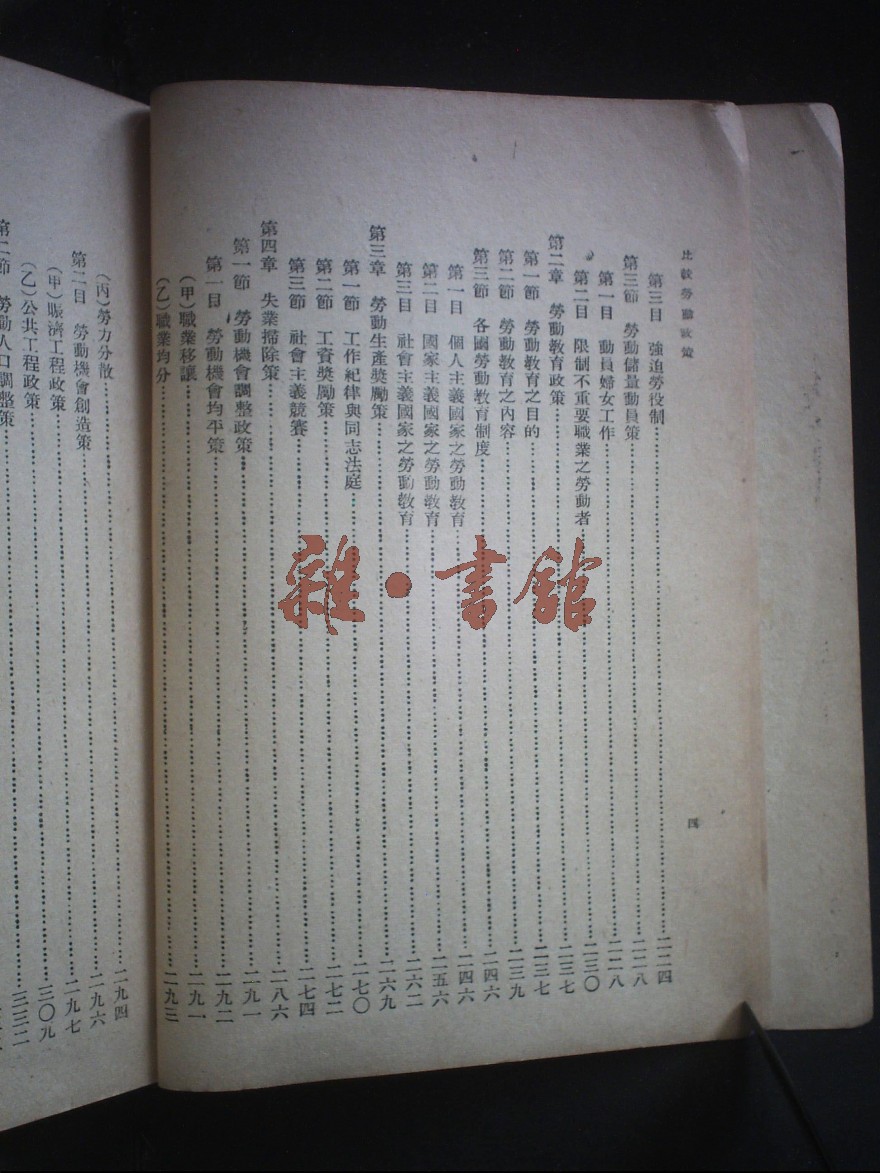 比較勞動政策 四
第三目 強迫勞役制……二二四
第三節 勞動儲量動員策……二二八
第一目 動員婦女工作……二二八
第二目 限制不重要職業之勞動者……二三〇
第二章 勞動教育政策……二三七
第一節 勞動教育之目的……二三七
第二節 勞動教育之內容……二三九
第三節 各國勞動教育制度……二四六
第一目 個人主義國家之勞動教育……二四六
第二目 國家主義國家之勞動教育……二五六
第三目 社會主義國家之勞動教育……二六二
第三章 勞動生產獎勵策……二六九
第一節 工作紀律與同志法庭……二七〇
第二節 工資獎勵策……二七二
第三節 社會主義競賽……二七四
第四章 失業掃除策……二八六
第一節 勞動機會調整政策……二九一
第一目 勞動機會均平策……二九二
(甲)職業移讓……二九一
(乙)職業均分……二九三
(丙)勞力分散……二九四
第二目 勞動機會創造策……二九六
(甲)賑濟工程政策……二九七
(乙)公共工程政策……三〇九
第二節 勞動人口調整策……三三二
雜·書館